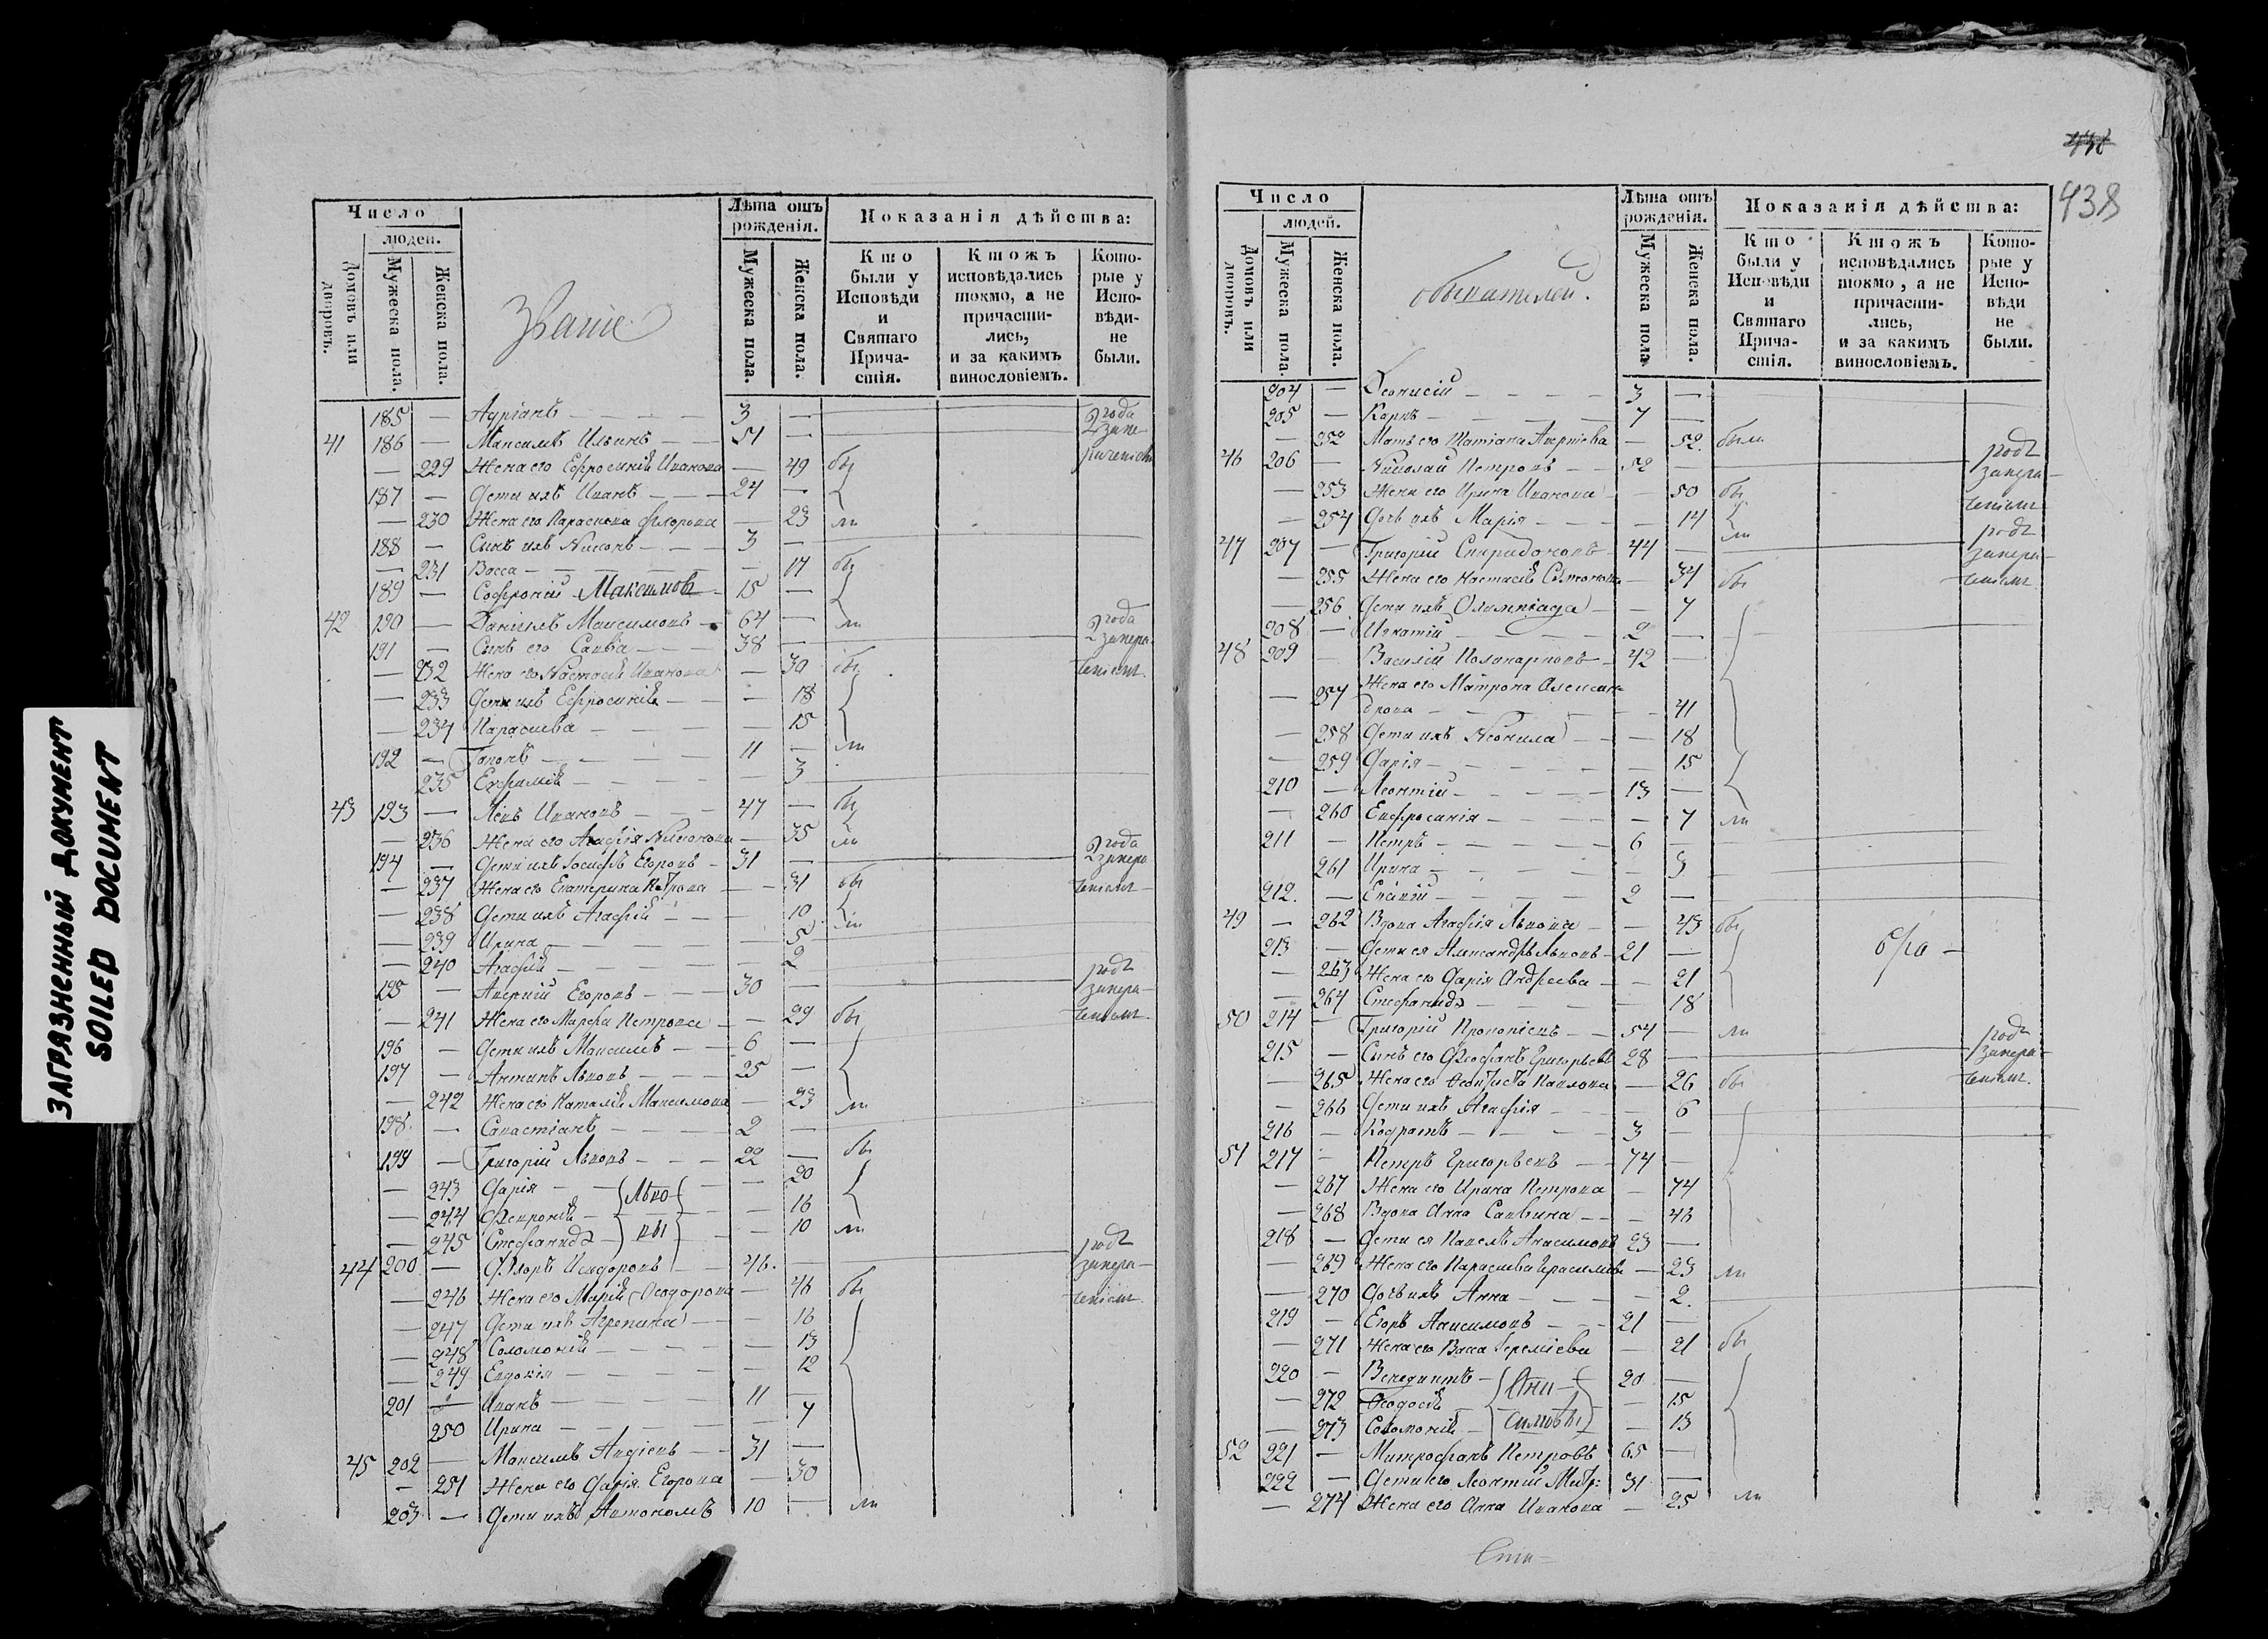 ЗАГРЯЗНЕННЫЙ ДОКУМЕНТ
SOILED DOCUMENT
Число
людей.
Домовъ или дворовъ.
Мужеска пола.
Женска пола.
Званіе
Лѣта отъ рожденія.
Мужеска пола.
Женска пола.
Показанія дѣйства:
Кто были у Исповѣди и Святаго Прича-стія.
Ктожъ исповѣдались токмо, а не причасти-лись, и за какимъ винословіемъ.
Кото-рые у Испо-вѣди-не были.
185 — Адріанъ — 3 —
2 года
41 186 — Максимъ Ильинъ — 51 —
— 229 Жена его Ефросинія Иванова — 49 бы
187 — Дети ихъ Иванъ — 24 —
— 230 Жена его Параскева Флорова — 23 ли
188 — Сынъ ихъ Никонъ — 3 —
— 231 Васса — 17 бы
189 — Софроній Максимовъ 15 —
42 190 — Даніилъ Максимовъ — 64 — ли 2 года
191 — Сынъ его Савва — 38 —
— 232 Жена его Настасія Иванова — 30 бы
— 233 Дети ихъ Ефросинія — 18
— 234 Параскева — 15
192 — Гапонъ — 11 — ли
235 Евфимія — 3
43 193 — Левъ Ивановъ — 47 — бы
— 236 Жена его Агафія — 35 ли
194 — Дети ихъ Іосифъ Егоровъ — 31 — 2 года
— 237 Жена его Екатерина Петрова — 31 бы
— 238 Дети ихъ Агафія — 10 ли
— 239 Ирина — 5
— 240 Агафія — 2
195 — Аверкій Егоровъ — 30 — годъ
— 241 Жена его Марфа Петрова — 29 бы
196 — Дети ихъ Максимъ — 6 —
197 — Антипъ Львовъ — 25 —
— 242 Жена его Наталія Максимова — 23 ли
198 — Савастіанъ — 2 —
199 — Григорій Львовъ — 22 — бы
— 243 Дарія — 20
— 244 Февронія — 16
— 245 Стефанида — 10 ли
Льво-
вы
44 200 — Флоръ Исидоровъ — 46 — годъ
— 246 Жена его Марія Ѳеодорова — 46 бы
— 247 Дети ихъ Агрепина — 16
— 248 Соломонія — 13
— 249 Евдокія — 12
201 — Иванъ — 11 —
250 Ирина — 7
45 202 — Максимъ — 31 —
— 251 Жена его Дарія Егорова — 30
203 — Дети ихъ Автономъ 10 — ли
438
Число
людей.
Домовъ или дворовъ.
Мужеска пола.
Женска пола.
обывателей.
Лѣта отъ рожденія.
Мужеска пола
Женска пола.
Показанія дѣйства:
Кто были у Исповѣди и Святаго Прича-стія.
Ктожъ исповѣдались токмо, а не причасти-лись, и за какимъ винословіемъ.
Кото-рые у Испо-вѣди не были.
204 — Деонисій — 3 —
205 — Карпъ — 7 —
— 252 Мать его Татіана — 52 были
46 206 — Николай Петровъ — 52 — годъ
— 253 Жена его Ирина Иванова — 50 бы
— 254 Дочь ихъ Марія — 14 ли
47 207 — Григорій Спиридоновъ 44 — годъ
— 255 Жена его Настасія — 34 бы
— 256 Дети ихъ Олимпіада — 7
208 — Игнатій — 2 —
48 209 — Василій Поликарповъ — 42 —
— 257 Жена его Матрона Алексан-
дрова — 41
— 258 Дети ихъ Неонила — 18
— 259 Дарія — 15
210 — Леонтій — 13 —
— 260 Евфросинія — 7 ли
211 — Петръ — 6 —
261 Ирина —
212 — — 2 —
49 — 262 Вдова Агафія Львова — 43 бы
213 — Дети ея Александръ Львовъ — 21 —
— 263 Жена его Дарія Андреева — 21
— 264 Стефанида — 18
50 214 — Григорій Прокопіевъ — 54 — ли годъ
215 — Сынъ его Ѳеофанъ Григорьевъ 28 —
— 265 Жена его Павлова — 26 бы
— 266 Дети ихъ Агафія — 6
216 — Кодратъ — 3 —
51 217 — Петръ Григорьевъ — 74 —
— 267 Жена его Ирина Петрова — 74
— 268 Вдова Анна Саввина — 46
218 — Дети ея Павелъ Анисимовъ 23 —
— 269 Жена его Параскева Герасимова — 23 ли
— 270 Дочь ихъ Анна — 2
219 — Егоръ Анисимовъ — 21 —
— 271 Жена его Васса Іереміева — 21 бы
220 — Венедиктъ — 20 —
— 272 Ѳеодосія — 15
— 273 Соломонія — 13
Ани-
симовы
52 221 — Митрофанъ Петровъ 65 —
222 — Дети его Леонтій Митр: 31 —
— 274 Жена его Анна Иванова — 25 ли